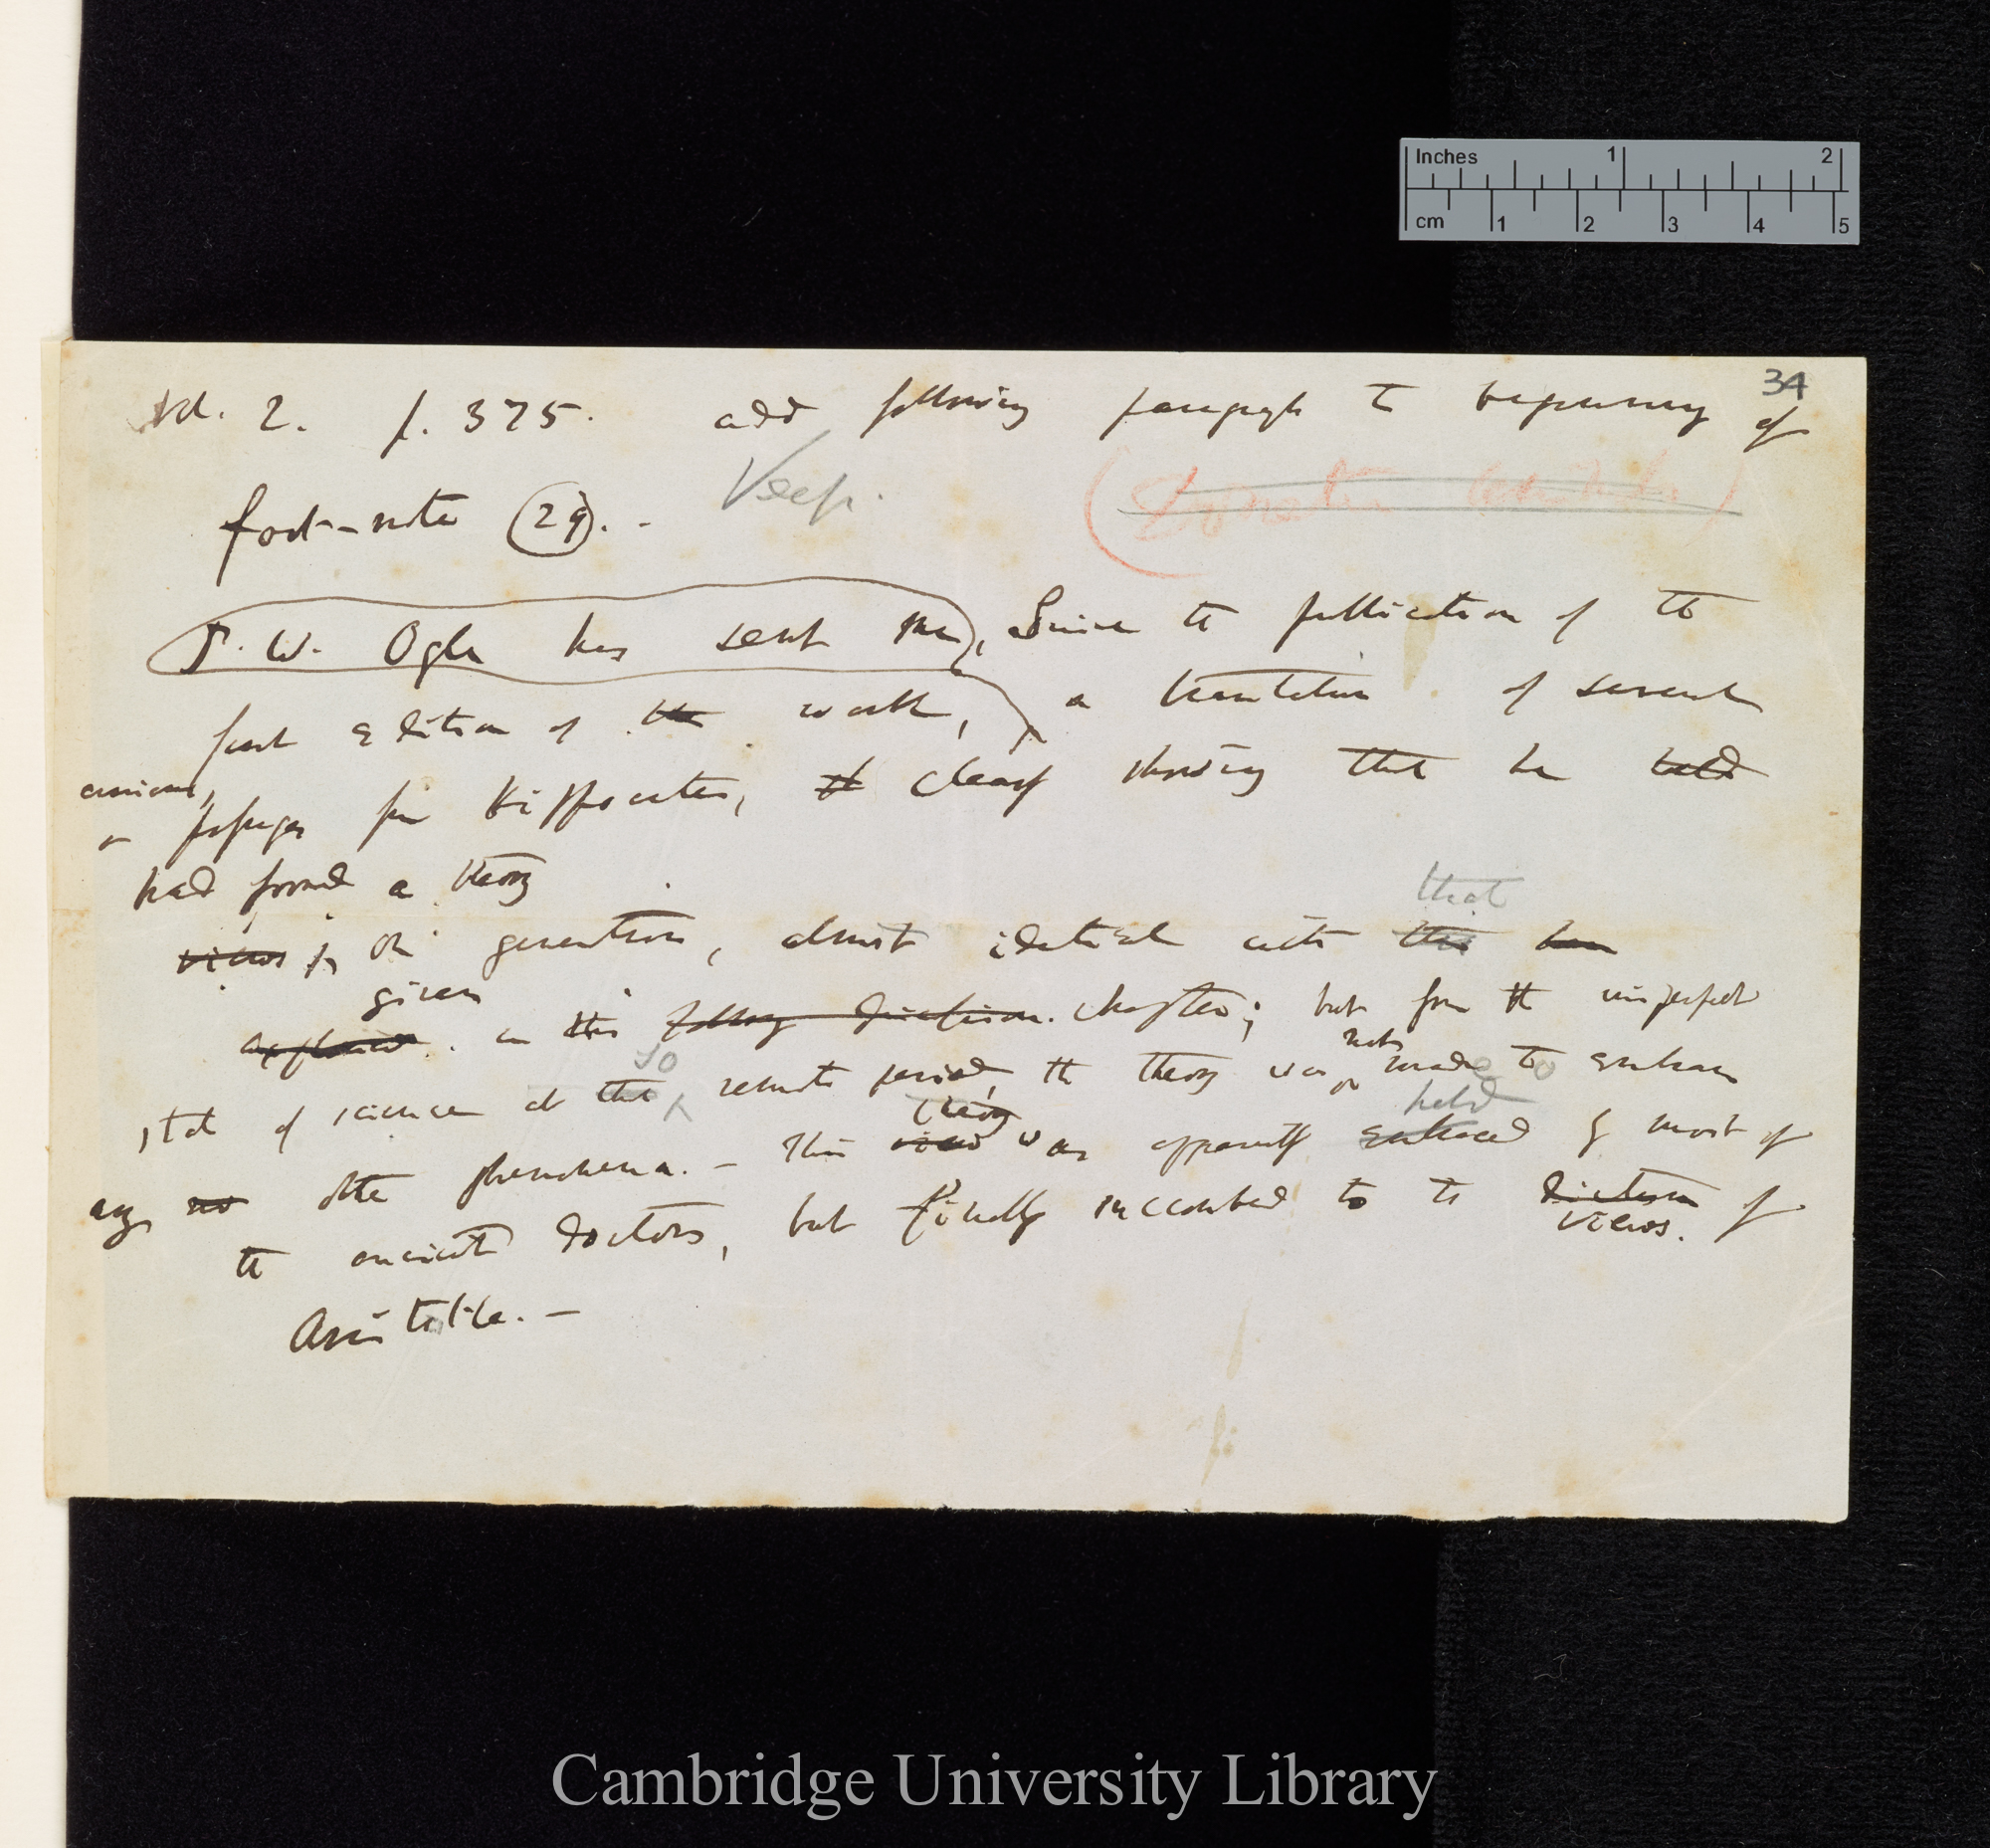 34
Vol. 2. p. 375. add following paragraph to beginning of
foot-note (29). - Keep.
J. W. Ogle has sent me, Since the publication of the
first edition of the work, a translation of several
curious
passages from Hippocrates, clearly showing that he held
had formed a theory
views on generation, almost identical with this
that
given
explained in this following discussion. chapter; but from the imperfect
so not
state of science at that remote period, the theory was made to embrace
theory held
any no other phenomena. - This view was apparently embraced by most of
the ancient doctors, but finally succumbed to the
views. of
Aristotle. -
Inches 1 2
cm 1 2 3 4 5
Cambridge University Library